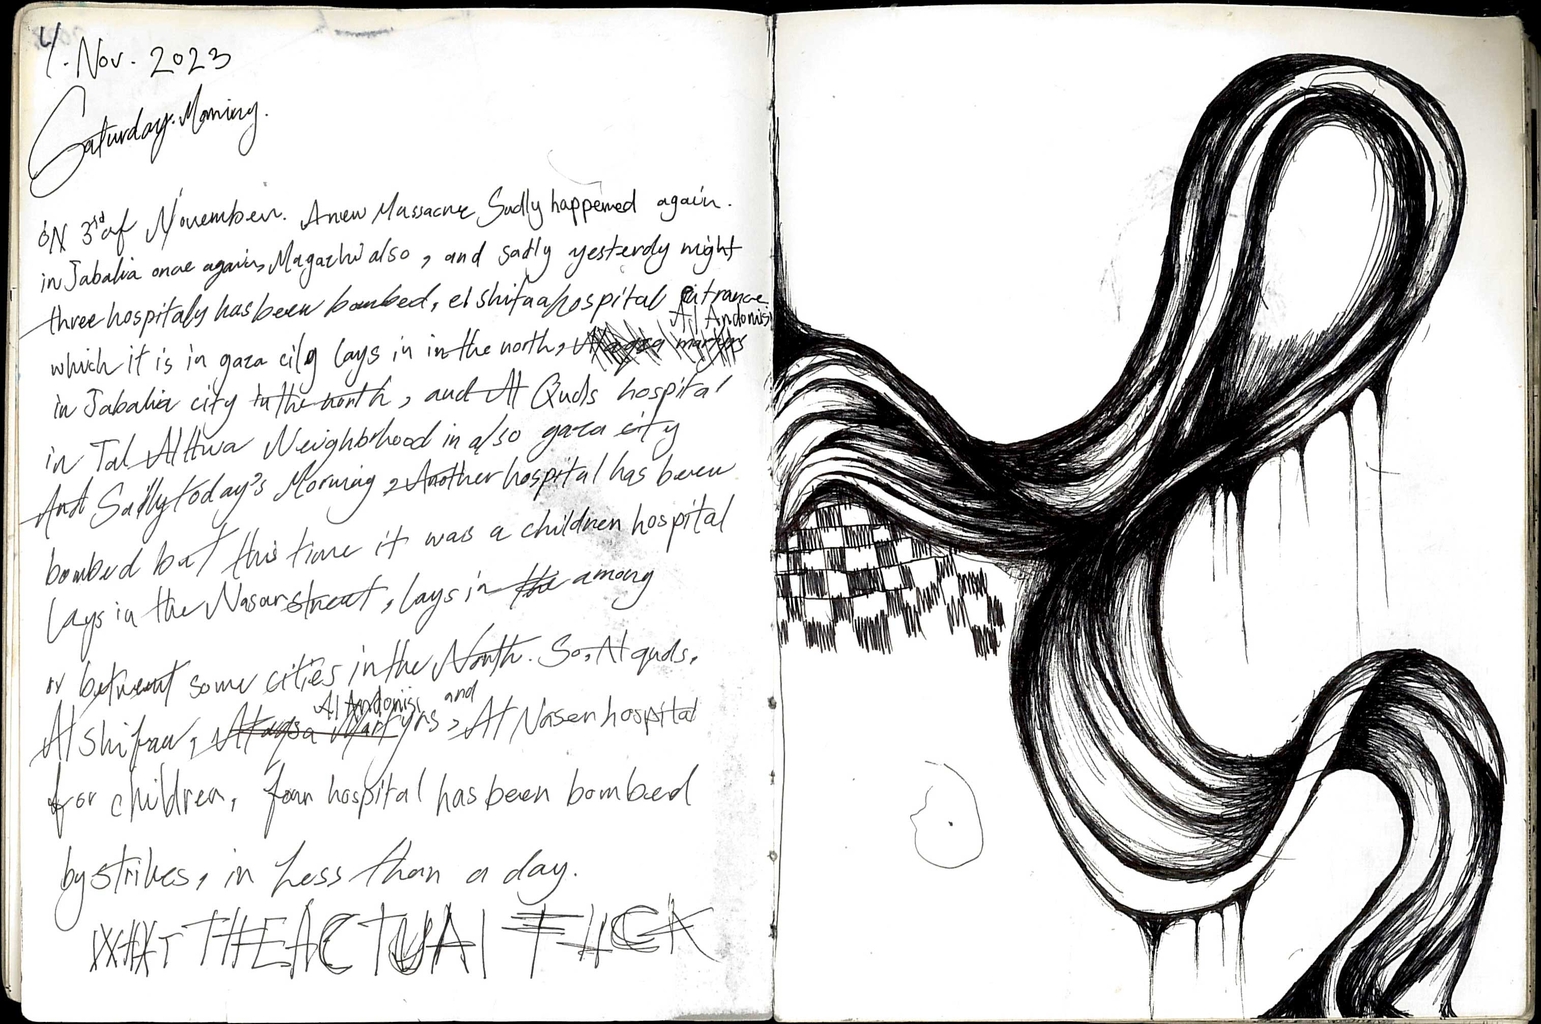 4. Nov. 2023
Saturday. Morning.
ON 3rd of November. A new Massacre Sadly happened again.
in Jabalia once again, Magazhi also, and sadly yesterdy night
three hospitals has been bombed, el shifaa hospital Entrance
which it is in gaza city lays in in the north, Al Andonisi
in Jabalia city in the north, and Al Quds hospital
in Tal Al Hwa Neighbrhood in also gaza city
And Sadly today's Morning, Another hospital has been
bombed but this time it was a children hospital
lays in the Nasar street, lays in the among
or between some cities in the North. So, Al quds,
Al shifaa, Al Andonisi and Al Naser hospital
for children, four hospital has been bombed
by strikes, in Less than a day.
WHAT THE ACTUAL FUCK